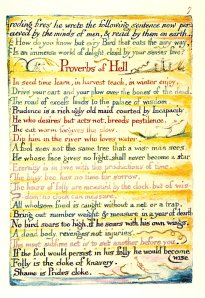 roding fires he wrote the following sentence now per-
ceived by the minds of men, & read by them on earth.
How do you know but ev'ry Bird that cuts the airy way,
Is an immense world of delight, clos'd by your senses five?
Proverbs of Hell
In seed time learn, in harvest teach, in winter enjoy.
Drive your cart and your plow over the bones of the dead.
The road of excess leads to the palace of wisdom.
Prudence is a rich ugly old maid courted by Incapacity.
He who desires but acts not, breeds pestilence.
The cut worm forgives the plow.
Dip him in the river who loves water.
A fool sees not the same tree that a wise man sees.
He whose face gives no light, shall never become a star.
Eternity is in love with the productions of time.
The busy bee has no time for sorrow.
The hours of folly are measur'd by the clock, but of wis-
dom: no clock can measure.
All wholsom food is caught without a net or a trap.
Bring out number weight & measure in a year of dearth.
No bird soars too high, if he soars with his own wings.
A dead body, revenges not injuries.
The most sublime act is to set another before you.
If the fool would persist in his folly he would become
wise
Folly is the cloke of knavery.
Shame is Prides cloke.